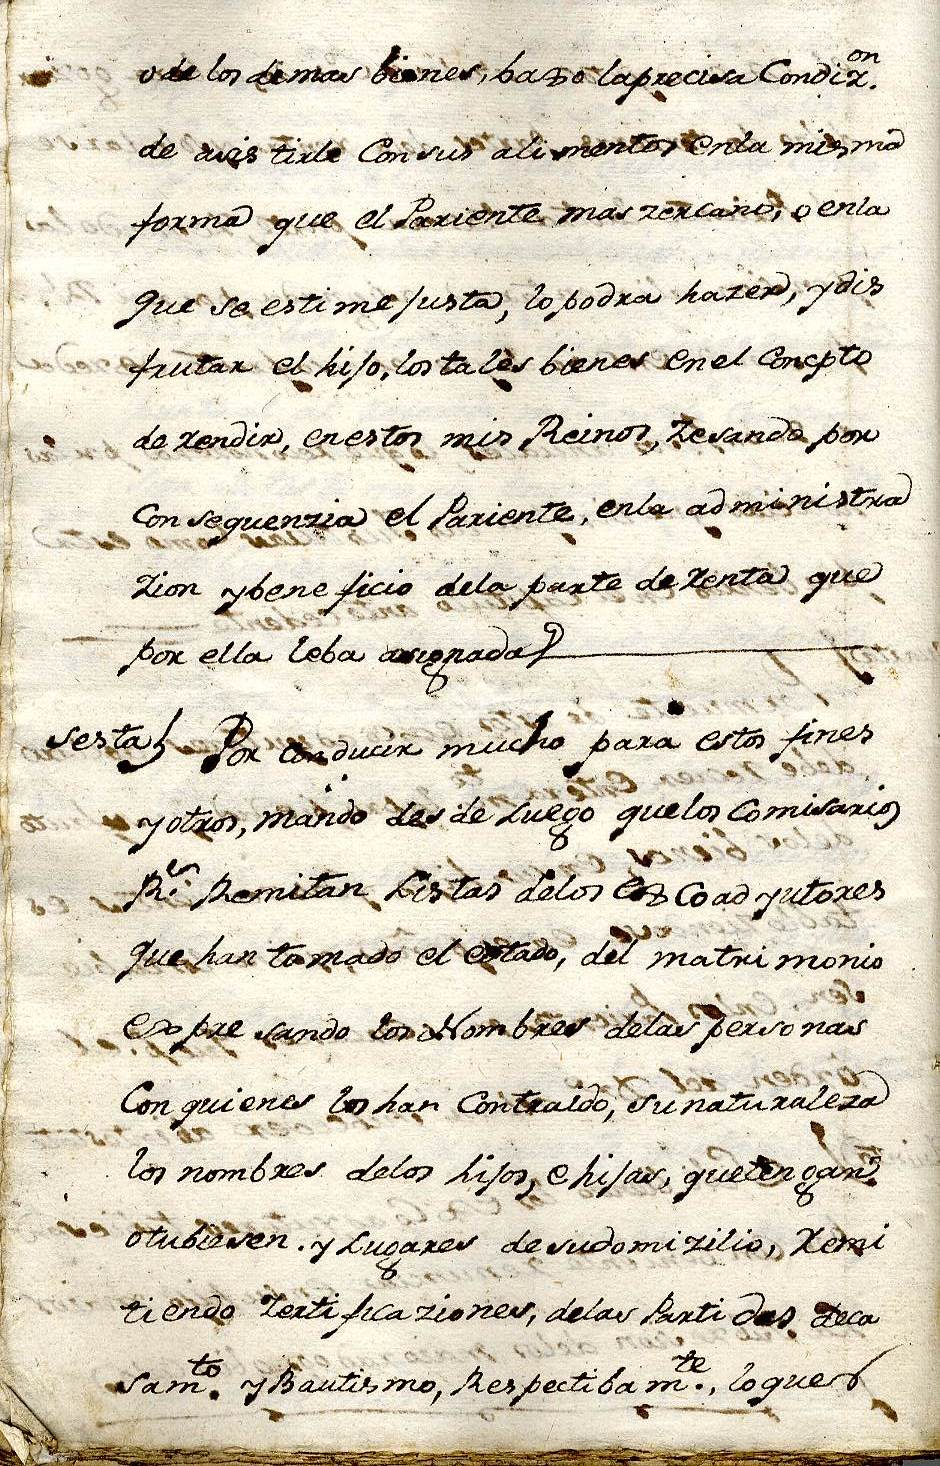 o de los demas bienes, baxo la precisa Condiz.on
de asistirle Con sus alimentos en la misma
forma que el Pariente mas zercano, o en la
que se estime justa, lo podra hazer, y dis
frutar el hijo, los tales bienes en el Concpto
de rendir, en estos mis Reinos, Zesando por
Consequenzia el Pariente, en la administra
zion y beneficio de la parte de renta que
por ella leba asignada
Sesta Por conducir mucho para estos fines
y otros, mando desde Luego que los Comisarios
R.s Remitan Listas de los Ex Coadyutores
que han tomado el estado, del matrimonio
expresando los Nombres de las personas
Con quienes los han Contraido, su naturaleza
los nombres de los hijos, e hijas, que tengan
o tubiesen. y Lugares de su domizilio, Remi
tiendo Zertificaziones, de las Partidas de ca
sam.to y Bautismo, Respectibam.te, lo que